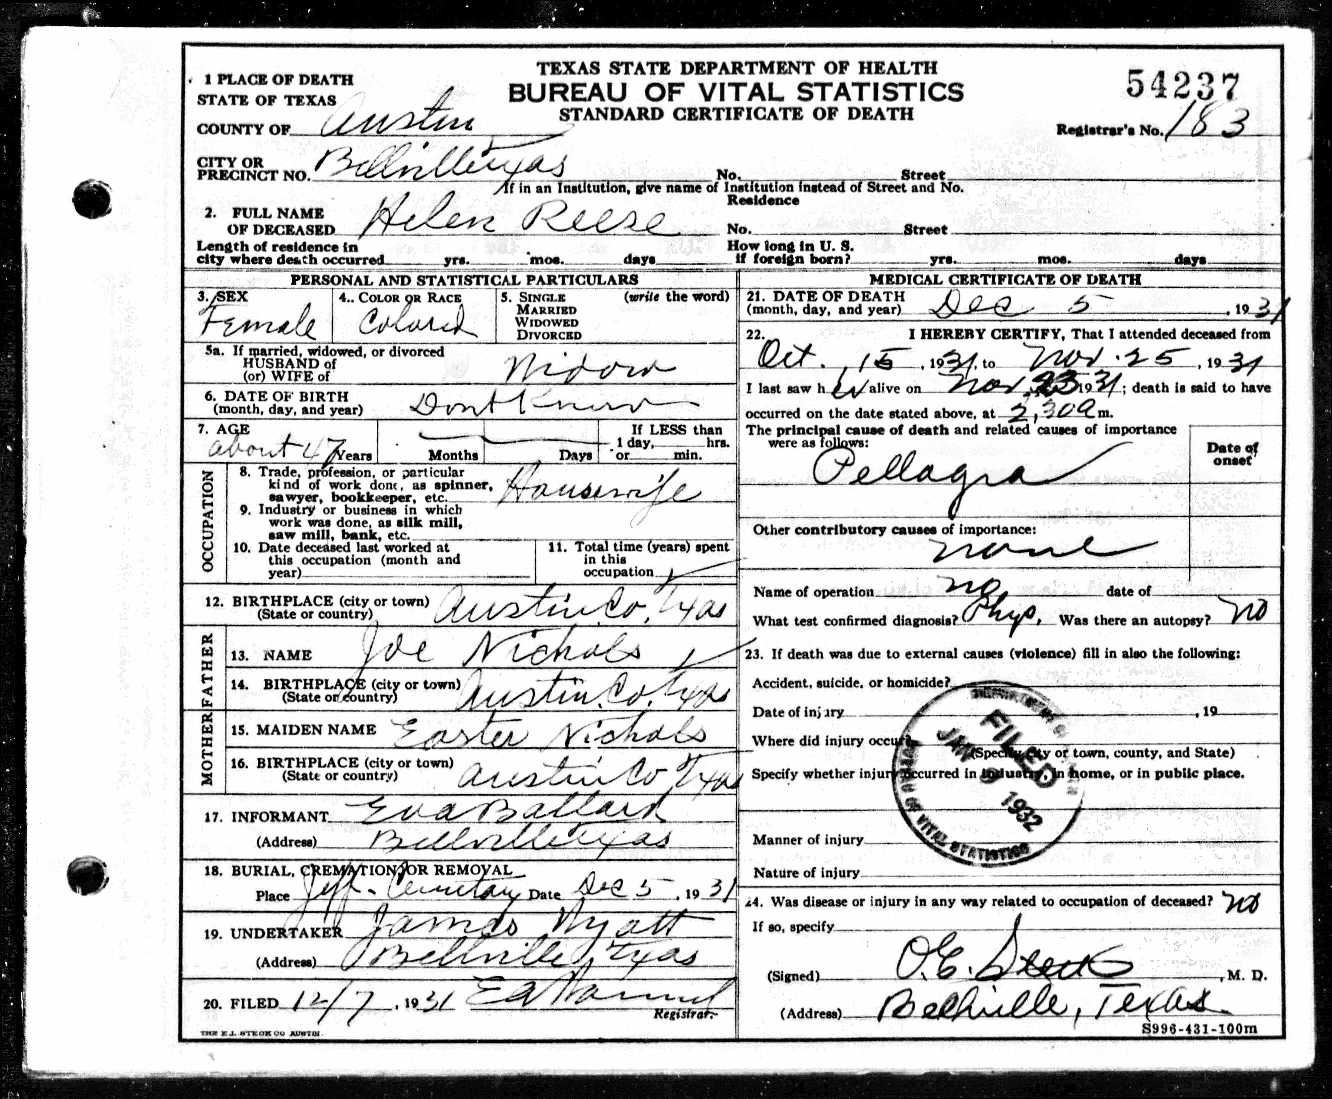 TEXAS STATE DEPARTMENT OF HEALTH
BUREAU OF VITAL STATISTICS
STANDARD CERTIFICATE OF DEATH
54237
Registrar's No. 183
1 PLACE OF DEATH
STATE OF TEXAS
COUNTY OF Austin
CITY OR
PRECINCT NO. Bellville Texas No. Street
If in an Institution, give name of Institution instead of Street and No.
Residence
2. FULL NAME
OF DECEASED Helen Reese No. Street
Length of residence in How long in U. S.
city where death occurred yrs. mos. days if foreign born? yrs. mos. days
PERSONAL AND STATISTICAL PARTICULARS
3. SEX
Female
4. COLOR OR RACE
Colored
5. SINGLE (write the word)
MARRIED
WIDOWED
DIVORCED
5a. If married, widowed, or divorced
HUSBAND of
(or) WIFE of Widow
6. DATE OF BIRTH
(month, day, and year) Dont Know
7. AGE
about 47 Years Months Days
If LESS than
1 day, hrs.
or min.
OCCUPATION
8. Trade, profession, or particular
kind of work done, as spinner,
sawyer, bookkeeper, etc. Housewife
9. Industry or business in which
work was done, as silk mill,
saw mill, bank, etc.
10. Date deceased last worked at
this occupation (month and
year)
11. Total time (years) spent
in this
occupation
12. BIRTHPLACE (city or town)
(State or country) Austin Co. Texas
FATHER
13. NAME Joe Nichols
14. BIRTHPLACE (city or town)
(State or country) Austin Co. Texas
MOTHER
15. MAIDEN NAME Easter Nichols
16. BIRTHPLACE (city or town)
(State or country) Austin Co Texas
17. INFORMANT Eva Ballard
(Address) Bellville Texas
18. BURIAL, CREMATION OR REMOVAL
Place Jeff. Cemetary Date Dec 5, 1931
19. UNDERTAKER James Wyatt
(Address) Bellville Texas
20. FILED 12/7, 1931
Registrar.
THE E.L. STECK CO AUSTIN.
MEDICAL CERTIFICATE OF DEATH
21. DATE OF DEATH
(month, day, and year) Dec 5, 1931
22. I HEREBY CERTIFY, That I attended deceased from
Oct. 15, 1931, to Nov. 25, 1931
I last saw her alive on Nov 1931; death is said to have
occurred on the date stated above, at 2,30 a m.
The principal cause of death and related causes of importance
were as follows:
Date of
onset
Pellagra
Other contributory causes of importance:
none
Name of operation no date of
What test confirmed diagnosis? Phys. Was there an autopsy? no
23. If death was due to external causes (violence) fill in also the following:
Accident, suicide, or homicide?
Date of injury , 19
Where did injury occur?
(Specify city or town, county, and State)
Specify whether injury occurred in industry, in home, or in public place.
Manner of injury
Nature of injury
FILED
JAN 1932
BUREAU OF VITAL STATISTICS
24. Was disease or injury in any way related to occupation of deceased? no
If so, specify
(Signed) O.E. , M. D.
(Address) Bellville, Texas
S996-431-100m